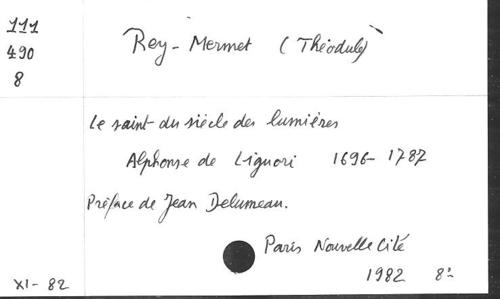 111
490
8
Rey-Mermet (Théodule)
Le saint du siècle des lumières
Alphonse de Liguori 1696-1787
Préface de Jean Delumeau.
Paris Nouvelle Cité
1982 8°
XI-82